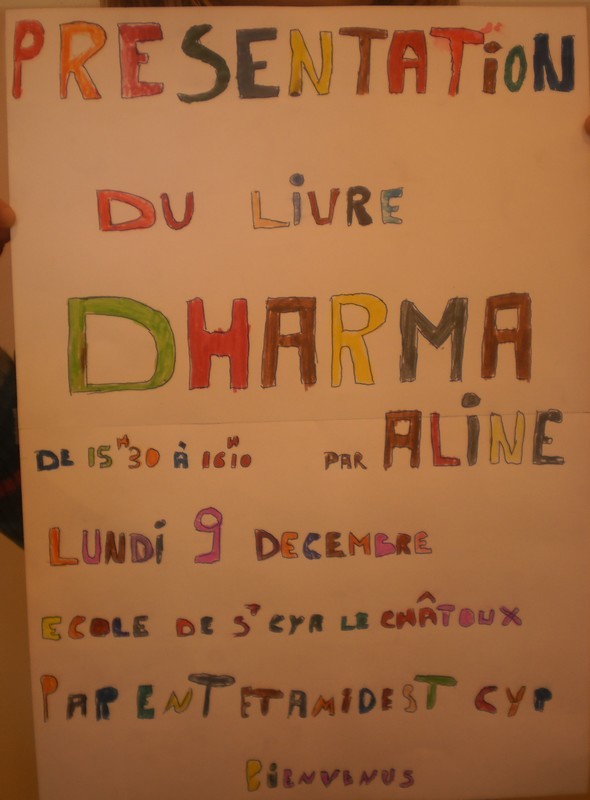 PRESENTATiON
DU LiVRE
DHARMA
DE 15H30 À 16H10 PAR ALiNE
LUNDi 9 DECEMBRE
ECOLE DE ST CYR LE CHÂTOUX
PARENT ETAMIDEST CYP
BiENVENUS